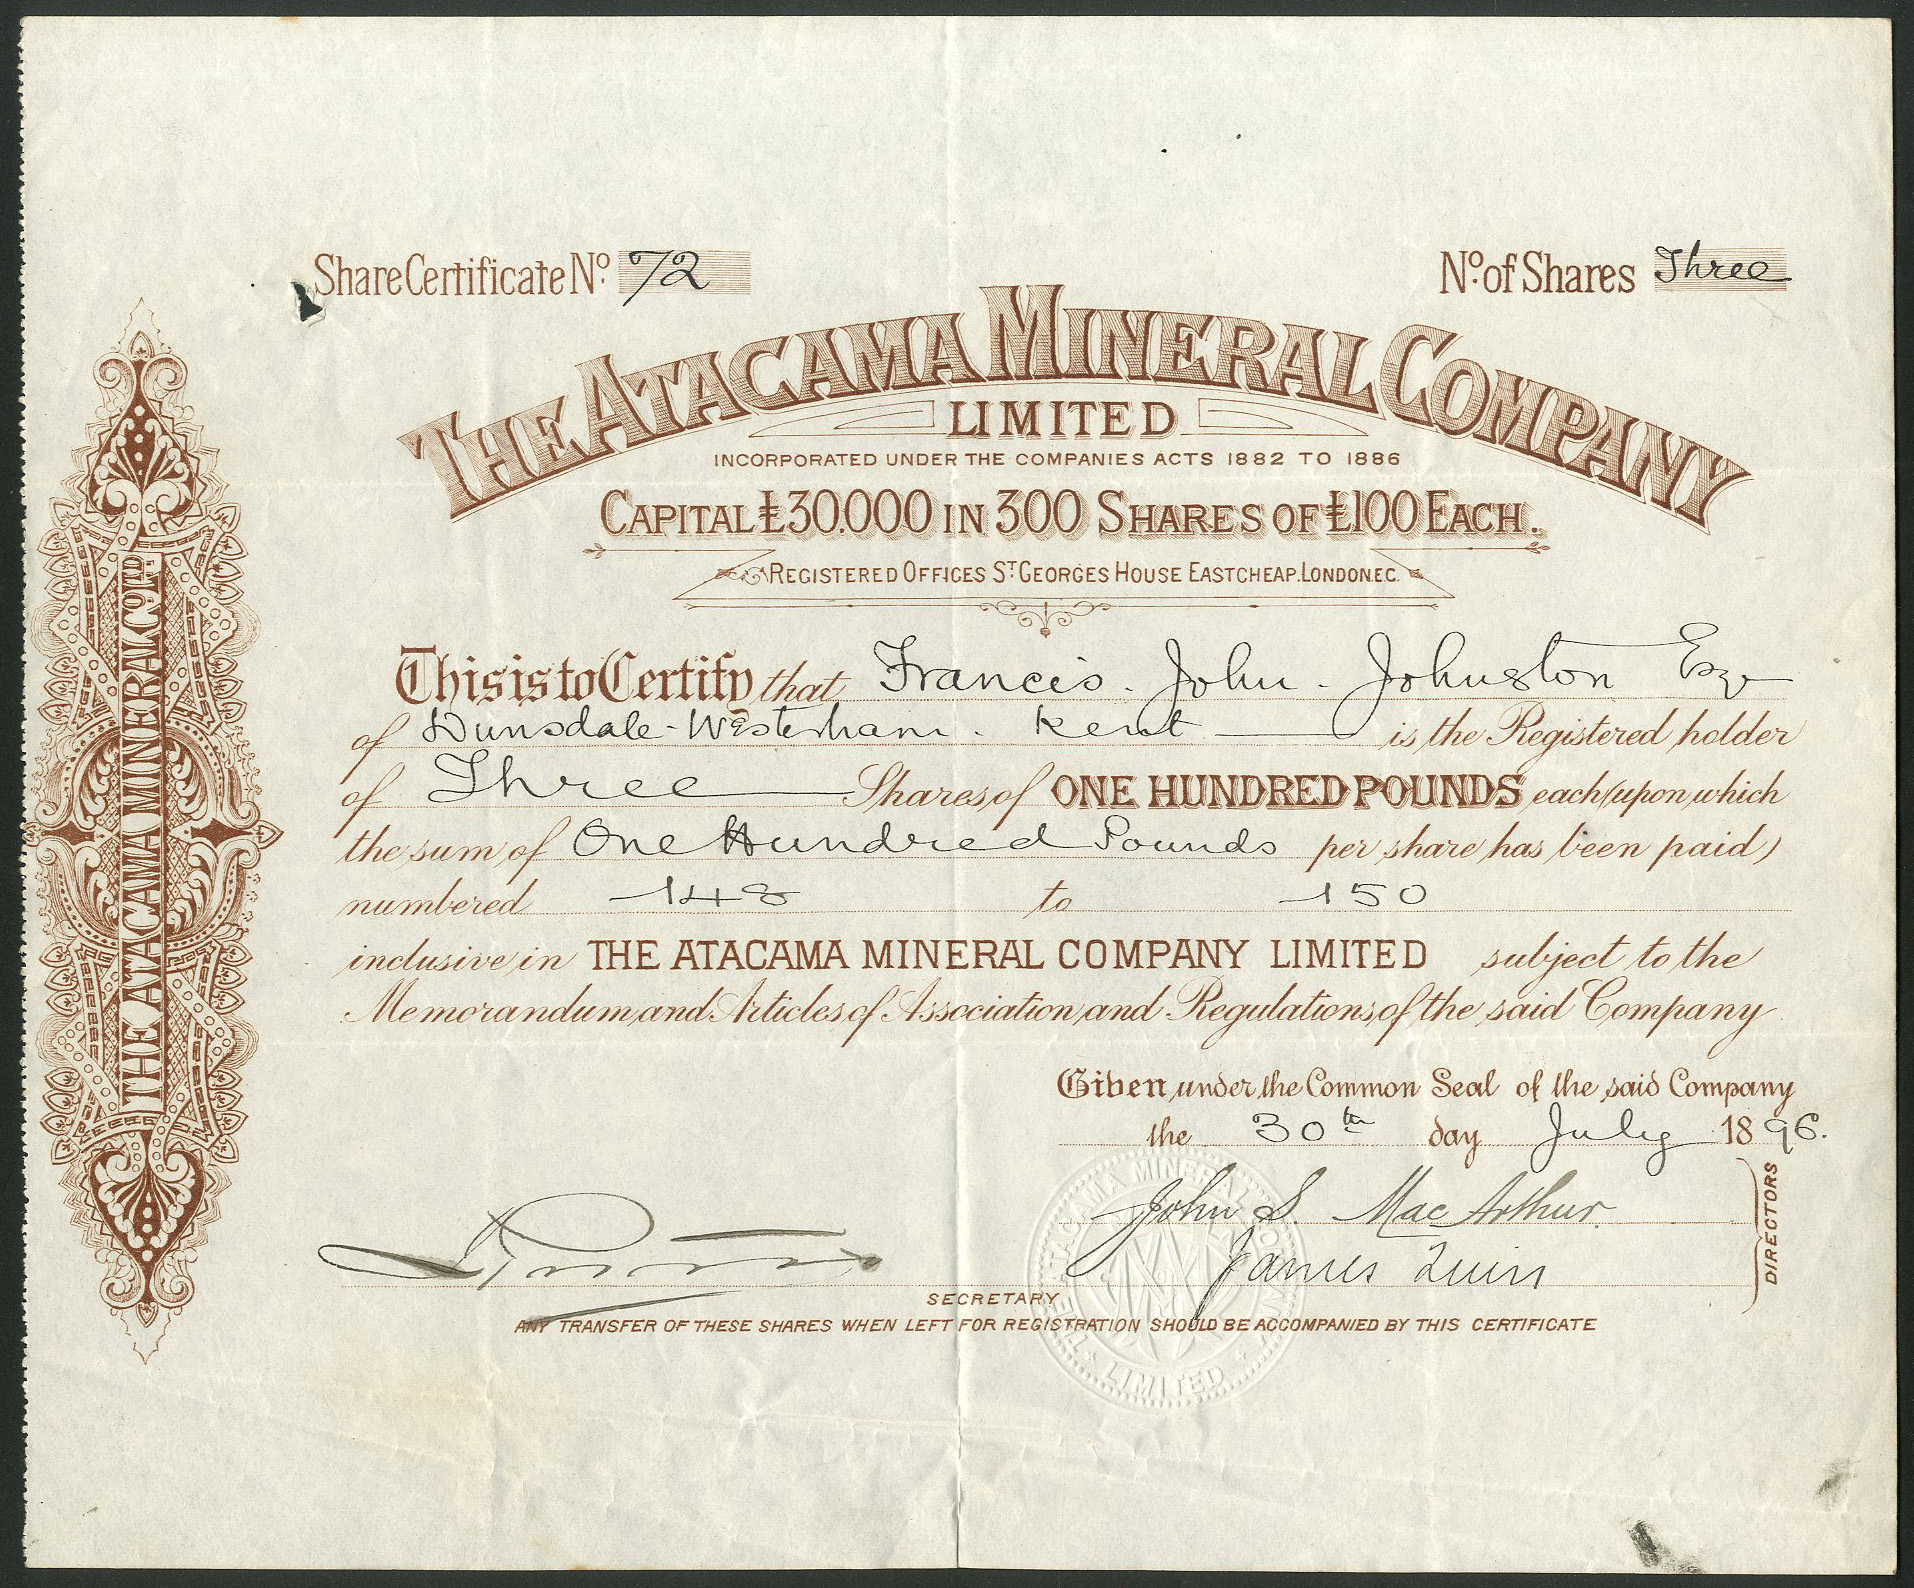 Share Certificate No. 72
No. of Shares Three
THE ATACAMA MINERAL COMPANY
LIMITED
INCORPORATED UNDER THE COMPANIES ACTS 1882 TO 1886
CAPITAL £30.000 IN 300 SHARES OF £100 EACH.
REGISTERED OFFICES ST GEORGES HOUSE EASTCHEAP. LONDON E.C.
This is to Certify that Francis. John. Johnston Esqr
of Dunsdale-Westerham. Kent is the Registered holder
of Three Shares of ONE HUNDRED POUNDS each (upon which
the sum of One Hundred Pounds per share has been paid)
numbered 148 to 150
inclusive in THE ATACAMA MINERAL COMPANY LIMITED subject to the
Memorandum and Articles of Association and Regulations of the said Company
Given under the Common Seal of the said Company
the 30th day July 1896.
John S. MacArthur.
James Quin
DIRECTORS
SECRETARY
ANY TRANSFER OF THESE SHARES WHEN LEFT FOR REGISTRATION SHOULD BE ACCOMPANIED BY THIS CERTIFICATE
THE ATACAMA MINERAL CO LTD.
THE ATACAMA MINERAL COMPANY
LIMITED